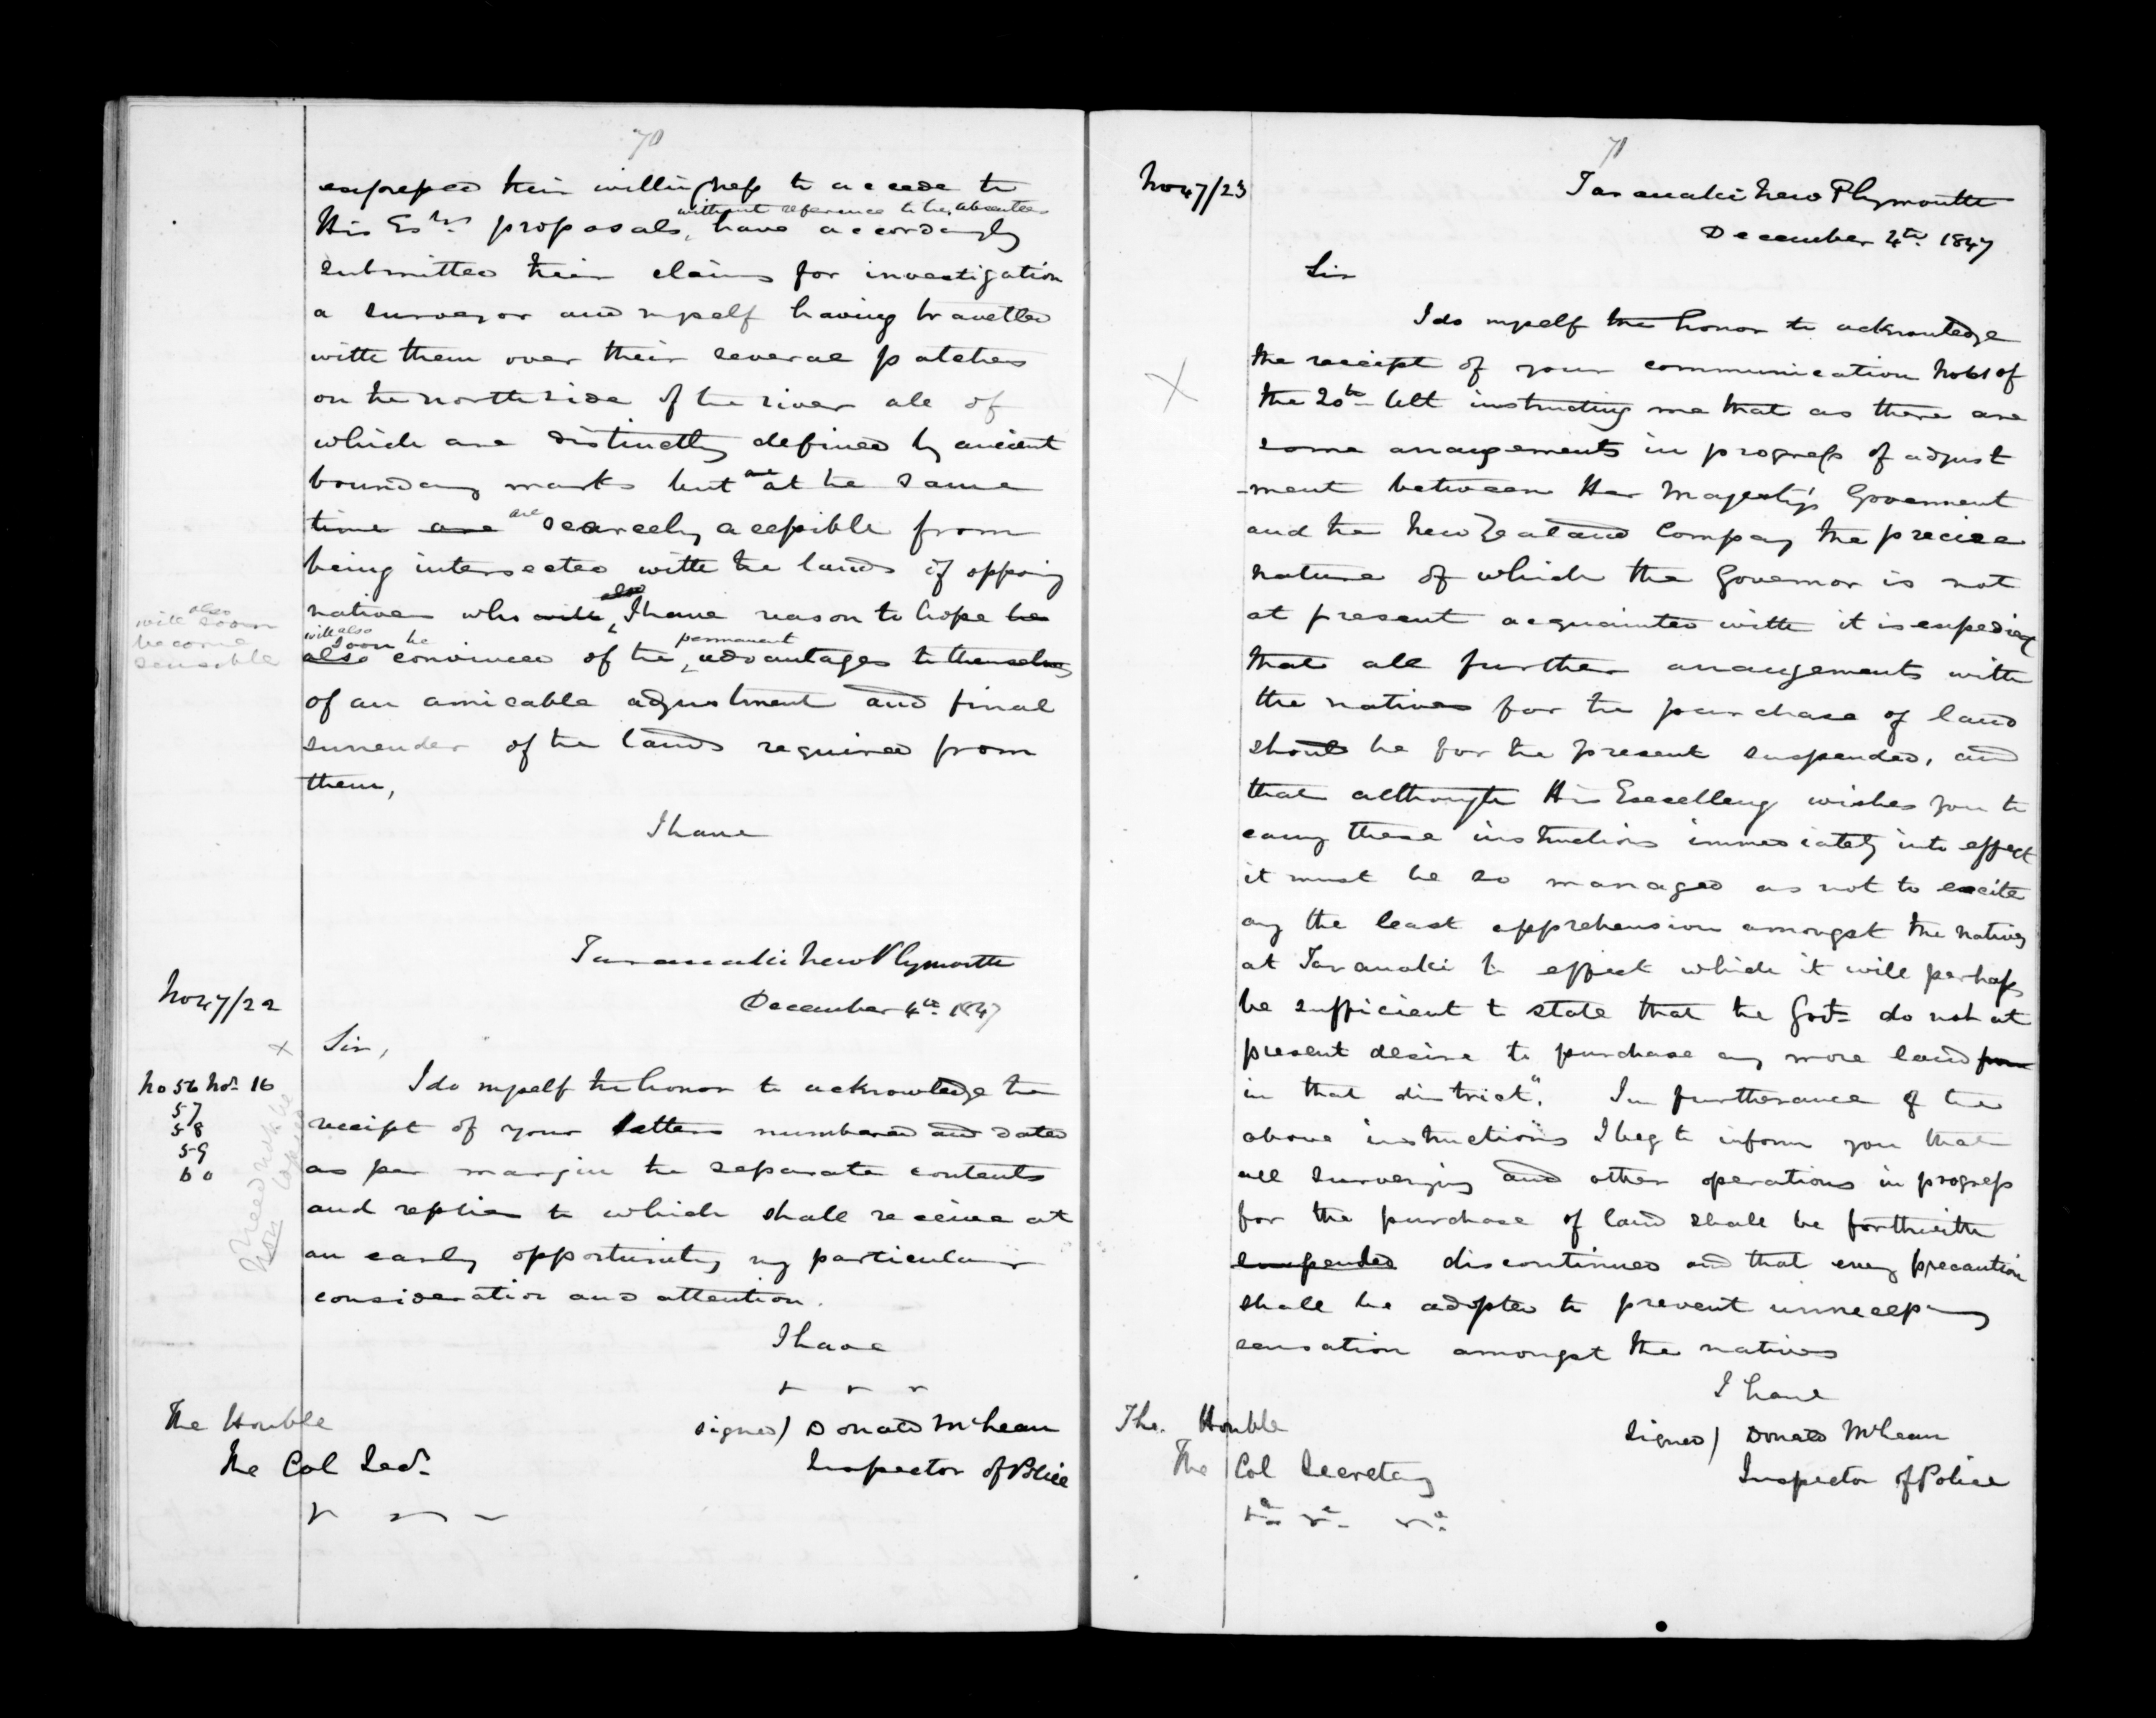 70
expressed their willingness to accede to
without reference to the absentees
His Exy's proposals, have accordingly
submitted their claims for investigation
a surveyor and myself having travelled
with them over their several patches
on the north side of the river all of
which are distinctly defined by ancient
boundary marks but at the same
time are are scarcely accessible from
being intersected with the lands of opposing
also
natives who will, I have reason to hope be
will also soon be permanent
also convinced of the, advantages to themselves
will also soon
become
sensible
of an amicable adjustment and final
surrender of the lands required from
them,
I have
Taranaki New Plymouth
No 47/22
December 4th 1847
Sir,
No 56 Nov. 16
57
58
59
60
Need not be
copied
I do myself the honor to acknowledge the
receipt of your letters numbered and dated
as per margin the separate contents
and replies to which shall receive at
an early opportunity my particular
consideration and attention.
I have
signed) Donald McLean
Inspector of Police
The Honble
The Col Secy.
71
No 47/23
Taranaki New Plymouth
December 4th 1847
Sir
I do myself the honor to acknowledge
the receipt of your communication No 61 of
the 20th Ult instructing me that as there are
some arrangements in progress of adjust
-ment between Her Majesty's Government
and the New Zealand Compay the precise
nature of which the Governor is not
at present acquainted with it is expedient
that all further arrangements with
the natives for the purchase of land
should be for the present suspended, and
that although His Excellency wishes you to
carry these instructions immediately into effect
it must be so managed as not to excite
any the least apprehension amongst the natives
at Taranaki to effect which it will perhaps
be sufficient to state that the Govt do not at
present desire to purchase any more land from
in that district". In furtherance of the
above instructions I beg to inform you that
all surveying and other operations in progress
for the purchase of land shall be forthwith
suspended discontinued and that every precaution
shall be adopted to prevent unnecessary
sensation amongst the natives
I have
signed) Donald McLean
Inspector of Police
The Honble
The Col Secretary